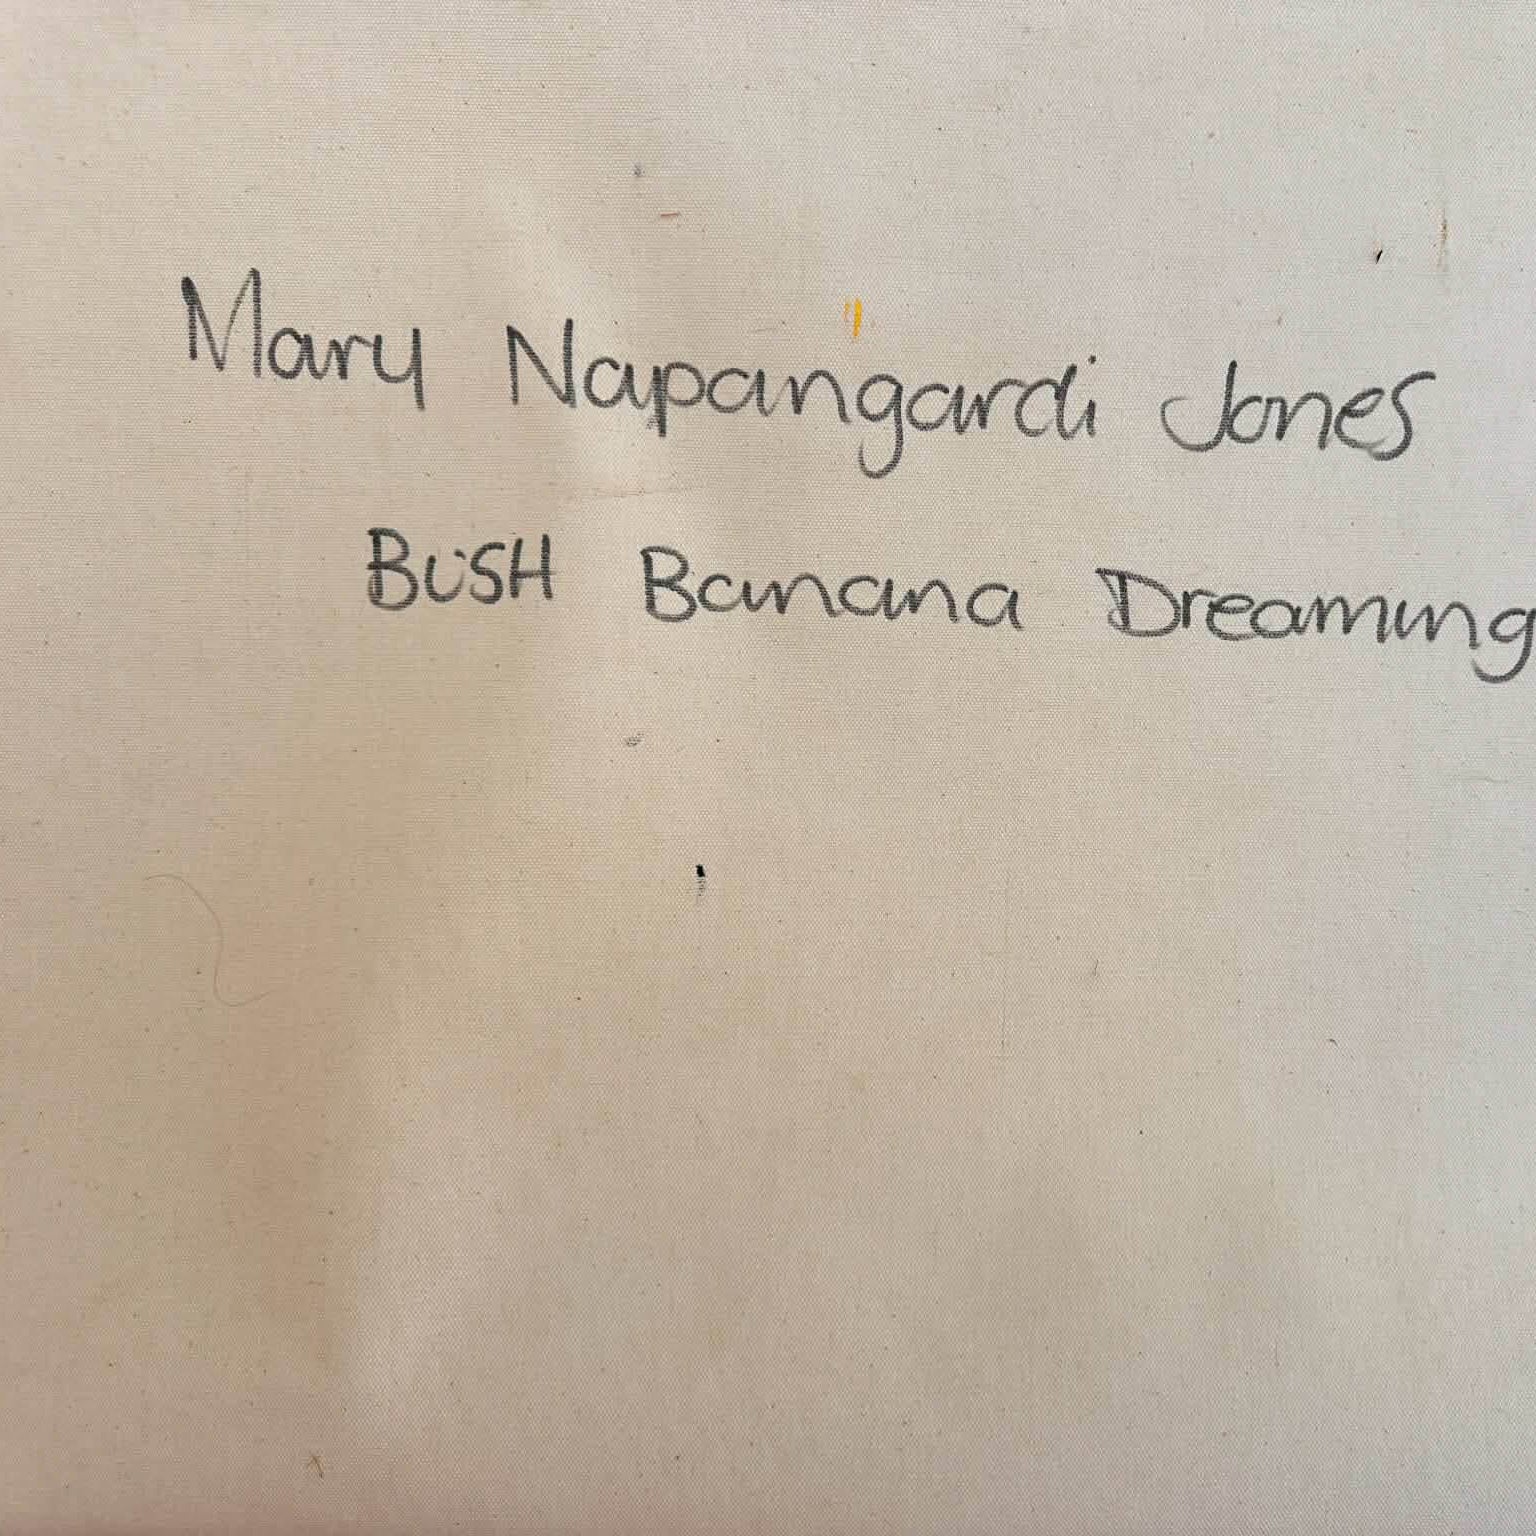 Mary Napangardi Jones
BUSH Banana Dreaming